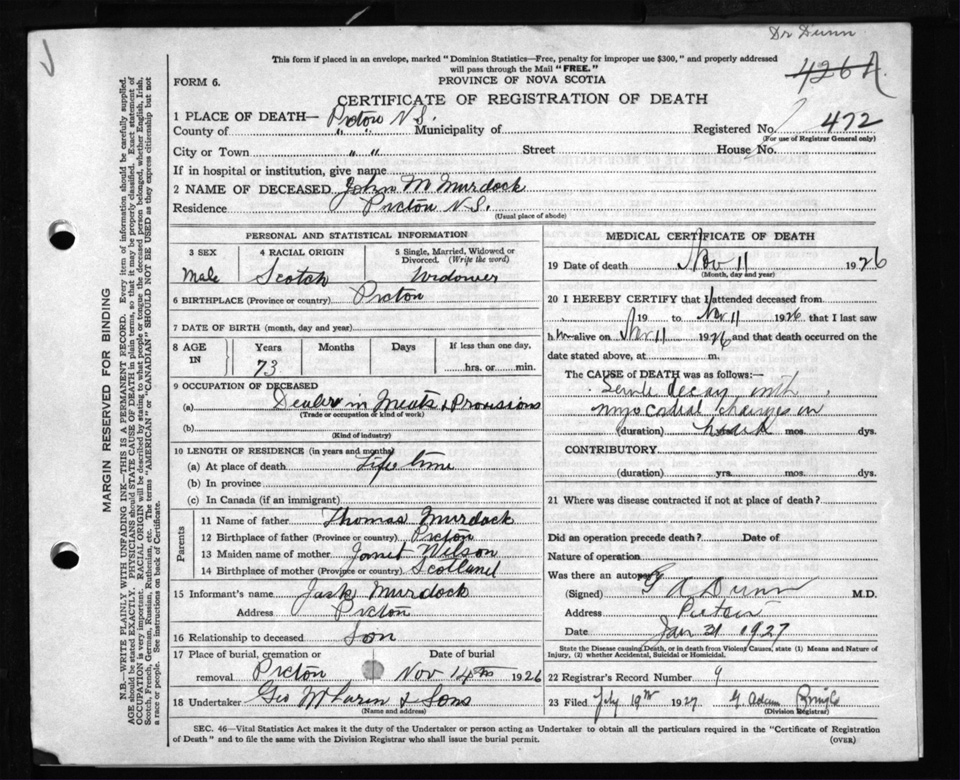 Dr Dunn
This form if placed in an envelope, marked "Dominion Statistics—Free, penalty for improper use $300," and properly addressed
will pass through the Mail "FREE."
426 A
FORM 6.
PROVINCE OF NOVA SCOTIA
CERTIFICATE OF REGISTRATION OF DEATH
1 PLACE OF DEATH— Pictou N.S.
County of " " Municipality of
Registered No. 472
(For use of Registrar General only)
City or Town " " Street House No.
If in hospital or institution, give name
2 NAME OF DECEASED John M Murdock
Residence Pictou N.S.
(Usual place of abode)
PERSONAL AND STATISTICAL INFORMATION
3 SEX 4 RACIAL ORIGIN 5 Single, Married, Widowed or
Divorced. (Write the word)
Male Scotch Widower
6 BIRTHPLACE (Province or country) Pictou
7 DATE OF BIRTH (month, day and year)
8 AGE Years Months Days If less than one day,
IN 73 hrs. or min.
9 OCCUPATION OF DECEASED
(a) Dealer in Meats & Provisions
(Trade or occupation or kind of work)
(b)
(Kind of industry)
10 LENGTH OF RESIDENCE (in years and months)
(a) At place of death Life time
(b) In province
(c) In Canada (if an immigrant)
Parents
11 Name of father Thomas Murdock
12 Birthplace of father (Province or country) Pictou
13 Maiden name of mother Janet Wilson
14 Birthplace of mother (Province or country) Scotland
15 Informant's name Jack Murdock
Address Pictou
16 Relationship to deceased Son
17 Place of burial, cremation or Date of burial
removal Pictou Nov 14th 1926
18 Undertaker Geo McLaren & Sons
(Name and address)
MEDICAL CERTIFICATE OF DEATH
19 Date of death Nov 11 1926
(Month, day and year)
20 I HEREBY CERTIFY that I attended deceased from
19 to Nov 11 1926 that I last saw
him alive on Nov 11 1926 and that death occurred on the
date stated above, at m.
The CAUSE of DEATH was as follows:—
Senile decay with
myocardial changes in
(duration) heart yrs. mos. dys.
CONTRIBUTORY
(duration) yrs. mos. dys.
21 Where was disease contracted if not at place of death?
Did an operation precede death? Date of
Nature of operation
Was there an autopsy
(Signed) G A Dunn M.D.
Address Pictou
Date Jan 31 1927
State the Disease causing Death, or in death from Violent Causes, state (1) Means and Nature of
Injury, (2) whether Accidental, Suicidal or Homicidal.
22 Registrar's Record Number 9
23 Filed July 19th 1927
(Division Registrar)
SEC. 46—Vital Statistics Act makes it the duty of the Undertaker or person acting as Undertaker to obtain all the particulars required in the "Certificate of Registration
of Death" and to file the same with the Division Registrar who shall issue the burial permit.
(OVER)
MARGIN RESERVED FOR BINDING
N.B.—WRITE PLAINLY WITH UNFADING INK—THIS IS A PERMANENT RECORD. Every item of information should be carefully supplied.
AGE should be stated EXACTLY. PHYSICIANS should STATE CAUSE OF DEATH in plain terms, so that it may be properly classified. Exact statement of
OCCUPATION is very important. RACIAL ORIGIN will be described by stating to what people or tongue the deceased person belonged, whether English, Irish,
Scotch, French, German, Russian, Ruthenian, etc. The terms "AMERICAN" or "CANADIAN" SHOULD NOT BE USED as they express citizenship but not
a race or people. See instructions on back of Certificate.